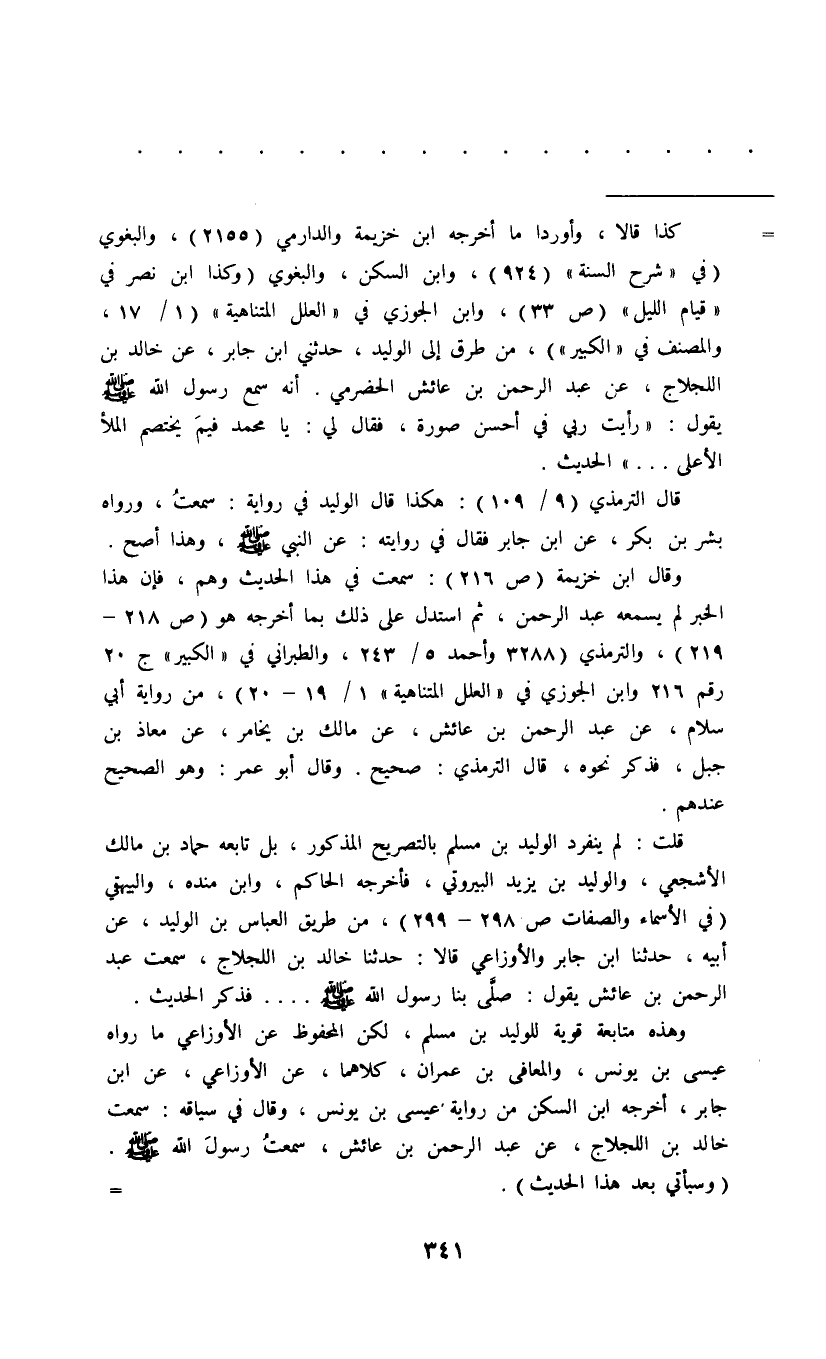 . . . . . . . . . . . . . . . .
= كذا قالا ، وأوردا ما أخرجه ابن خزيمة والدارمي ( ٢١٥٥ ) ، والبغوي
( في « شرح السنة » ( ٩٢٤ ) ، وابن السكن ، والبغوي ( وكذا ابن نصر في
« قيام الليل » ( ص ٣٣ ) ، وابن الجوزي في « العلل المتناهية » ( ١ / ١٧ ،
والمصنف في « الكبير » ) ، من طرق إلى الوليد ، حدثني ابن جابر ، عن خالد بن
اللجلاج ، عن عبد الرحمن بن عائش الحضرمي . أنه سمع رسول الله ﷺ
يقول : « رأيت ربي في أحسن صورة ، فقال لي : يا محمد فيمَ يختصم الملأ
الأعلى . . . » الحديث .
قال الترمذي ( ٩ / ١٠٩ ) : هكذا قال الوليد في رواية : سمعتُ ، ورواه
بشر بن بكر ، عن ابن جابر فقال في روايته : عن النبي ﷺ ، وهذا أصح .
وقال ابن خزيمة ( ص ٢١٦ ) : سمعت في هذا الحديث وهم ، فإن هذا
الخبر لم يسمعه عبد الرحمن ، ثم استدل على ذلك بما أخرجه هو ( ص ٢١٨ –
٢١٩ ) ، والترمذي ( ٣٢٨٨ وأحمد ٥ / ٢٤٣ ، والطبراني في « الكبير » ج ٢٠
رقم ٢١٦ وابن الجوزي في « العلل المتناهية » ١ / ١٩ – ٢٠ ) ، من رواية أبي
سلام ، عن عبد الرحمن بن عائش ، عن مالك بن يخامر ، عن معاذ بن
جبل ، فذكر نحوه ، قال الترمذي : صحيح . وقال أبو عمر : وهو الصحيح
عندهم .
قلت : لم ينفرد الوليد بن مسلم بالتصريح المذكور ، بل تابعه حماد بن مالك
الأشجعي ، والوليد بن يزيد البيروتي ، فأخرجه الحاكم ، وابن منده ، والبيهقي
( في الأسماء والصفات ص ٢٩٨ – ٢٩٩ ) ، من طريق العباس بن الوليد ، عن
أبيه ، حدثنا ابن جابر والأوزاعي قالا : حدثنا خالد بن اللجلاج ، سمعت عبد
الرحمن بن عائش يقول : صلَّى بنا رسول الله ﷺ . . . . فذكر الحديث .
وهذه متابعة قوية للوليد بن مسلم ، لكن المحفوظ عن الأوزاعي ما رواه
عيسى بن يونس ، والمعافى بن عمران ، كلاهما ، عن الأوزاعي ، عن ابن
جابر ، أخرجه ابن السكن من رواية عيسى بن يونس ، وقال في سياقه : سمعت
خالد بن اللجلاج ، عن عبد الرحمن بن عائش ، سمعتُ رسولَ الله ﷺ .
( وسيأتي بعد هذا الحديث ) . =
٣٤١